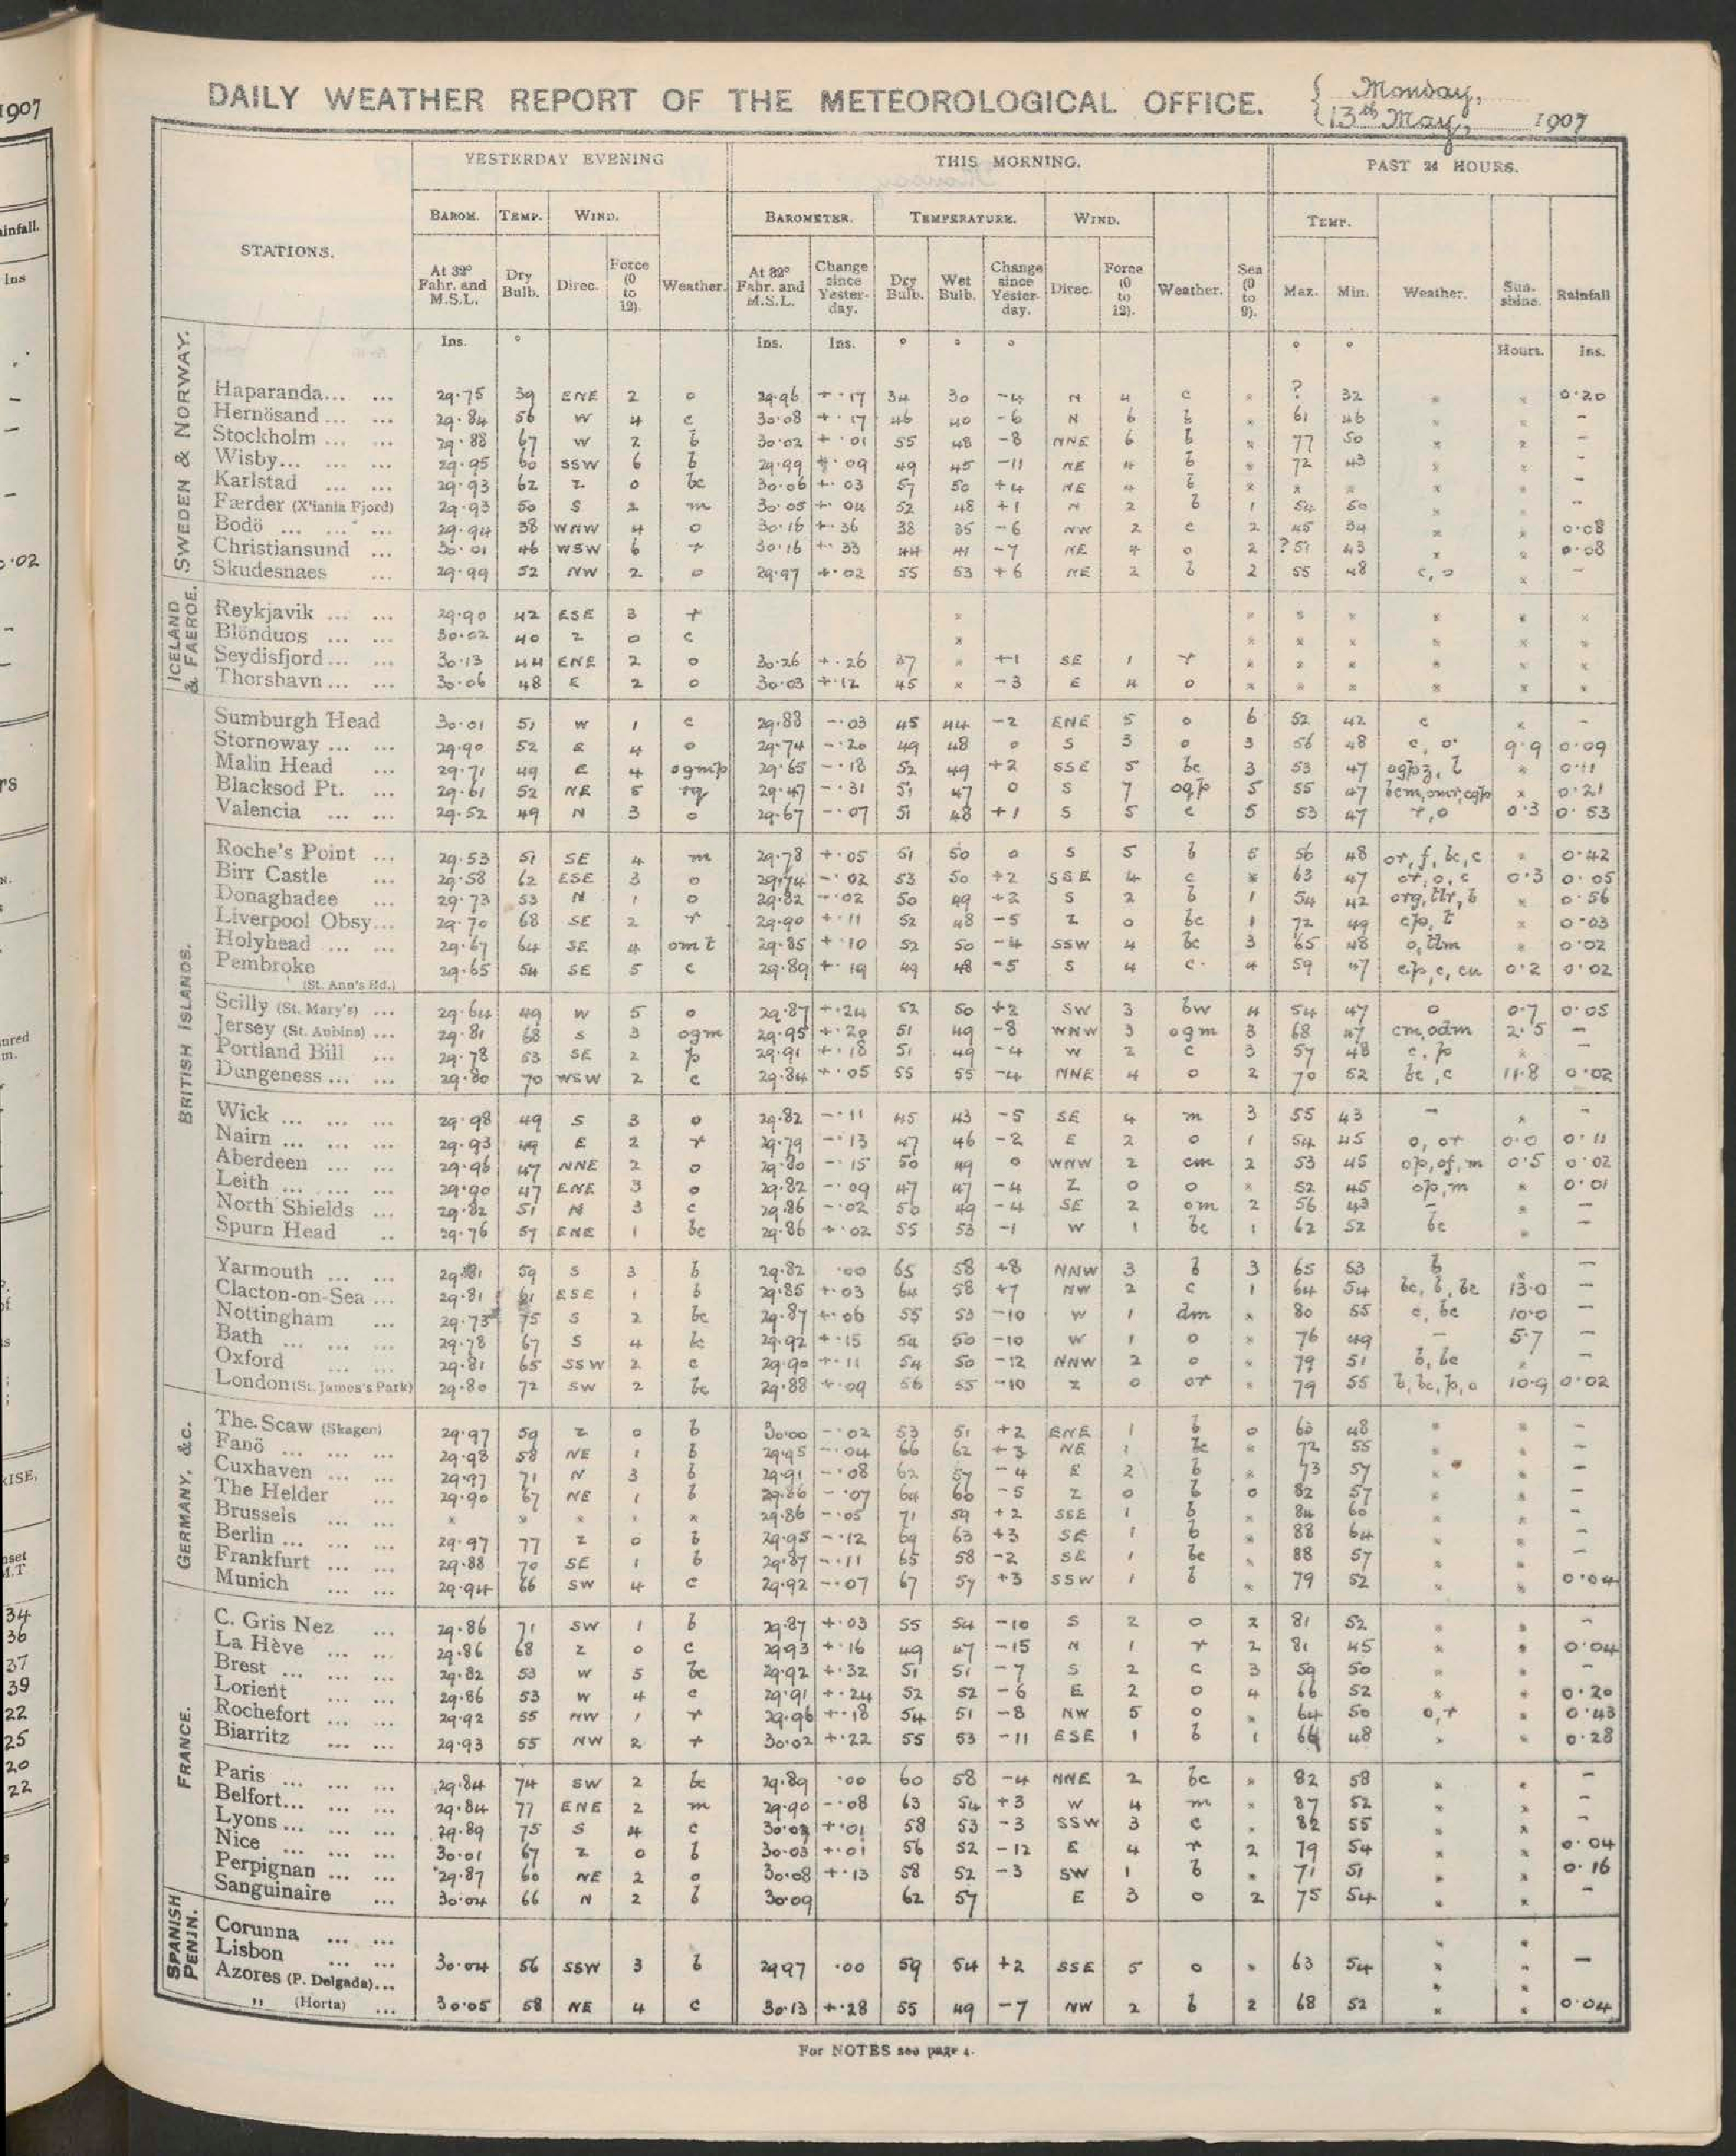 1907
DAILY WEATHER REPORT OF THE METEOROLOGICAL OFFICE. { Monday,
{ 13th May, 1907
STATIONS. YESTERDAY EVENING THIS MORNING. PAST 24 HOURS.
BAROM. TEMP. WIND. BAROMETER. TEMPERATURE. WIND. TEMP.
At 32° Fahr. and M.S.L. Dry Bulb. Direc. Force (0 to 12). Weather. At 32° Fahr. and M.S.L. Change since Yester-day. Dry Bulb. Wet Bulb. Change since Yester-day. Direc. Force (0 to 12). Weather. Sea (0 to 9). Max. Min. Weather. Sun-shine. Rainfall
Ins. ° Ins. Ins. ° ° ° ° ° Hours. Ins.
SWEDEN & NORWAY.
Haparanda... ... 29.75 39 ENE 2 o 29.96 +.17 34 30 -4 N 4 c * ? 32 * * 0.20
Hernösand ... ... 29.84 56 W 4 c 30.08 +.17 46 40 -6 N 6 b * 61 46 * * -
Stockholm ... ... 29.88 67 W 2 b 30.02 +.01 55 48 -8 NNE 6 b * 77 50 * * -
Wisby... ... ... 29.95 60 SSW 6 b 29.99 +.09 49 45 -11 NE 4 b * 72 43 * * -
Karlstad ... ... 29.93 62 Z 0 bc 30.06 +.03 57 50 +4 NE 4 b * * * * *
Færder (X'iania Fjord) 29.93 50 S 2 m 30.05 +.04 52 48 +1 N 2 b 1 54 50 * * -
Bodö ... ... ... 29.94 38 WNW 4 o 30.16 +.36 38 35 -6 NW 2 c 2 45 34 * * 0.08
Christiansund ... 30.01 46 WSW 6 r 30.16 +.33 44 41 -7 NE 4 o 2 ?51 43 * * 0.08
Skudesnaes ... 29.99 52 NW 2 o 29.97 +.02 55 53 +6 NE 2 b 2 55 48 c, o * -
ICELAND & FAEROE.
Reykjavik ... ... 29.90 42 ESE 3 r * * * * * * *
Blönduos ... ... 30.02 40 Z 0 c * * * * * * *
Seydisfjord... ... 30.13 44 ENE 2 o 30.26 +.26 37 * +1 SE 1 r * * * * * *
Thorshavn ... ... 30.06 48 E 2 o 30.03 +.12 45 * -3 E 4 o * * * * * *
BRITISH ISLANDS.
Sumburgh Head 30.01 51 W 1 c 29.88 -.03 45 44 -2 ENE 5 o 6 52 42 c * -
Stornoway ... ... 29.90 52 E 4 o 29.74 -.20 49 48 0 S 3 o 3 56 48 c, o 9.9 0.09
Malin Head ... 29.71 49 E 4 ogmp 29.65 -.18 52 49 +2 SSE 5 bc 3 53 47 * 0.11
Blacksod Pt. ... 29.61 52 NE 5 rq 29.47 -.31 51 47 0 S 7 oqp 5 55 47 * 0.21
Valencia ... ... 29.52 49 N 3 o 29.67 -.07 51 48 +1 S 5 c 5 53 47 r, o 0.3 0.53
Roche's Point ... 29.53 51 SE 4 m 29.78 +.05 51 50 0 S 5 b 5 56 48 or, f, bc, c * 0.42
Birr Castle ... 29.58 62 ESE 3 o 29.74 -.02 53 50 +2 SSE 4 c * 63 47 or, o, c 0.3 0.05
Donaghadee ... 29.73 53 N 1 o 29.82 -.02 50 49 +2 S 2 b 1 54 42 org, tlr, b * 0.56
Liverpool Obsy... 29.70 68 SE 2 r 29.90 +.11 52 48 -5 Z 0 bc 1 72 49 cp, t 0.03
Holyhead ... ... 29.67 64 SE 4 omt 29.85 +.10 52 50 -4 SSW 4 bc 3 65 48 o, tlm * 0.02
Pembroke (St. Ann's Hd.) 29.65 54 SE 5 c 29.89 +.19 49 48 -5 S 4 c 4 59 47 0.2 0.02
Scilly (St. Mary's) ... 29.64 49 W 5 o 29.87 +.24 52 50 +2 SW 3 bw 4 54 47 o 0.7 0.05
Jersey (St. Aubins) ... 29.81 68 S 3 ogm 29.95 +.20 51 49 -8 WNW 3 ogm 3 68 47 cm, odm 2.5 -
Portland Bill ... 29.78 53 SE 2 p 29.91 +.18 51 49 -4 W 2 c 3 57 48 c, p * -
Dungeness ... ... 29.80 70 WSW 2 c 29.84 +.05 55 55 -4 NNE 4 o 2 70 52 bc, c 11.8 0.02
Wick ... ... ... 29.98 49 S 3 o 29.82 -.11 45 43 -5 SE 4 m 3 55 43 - * -
Nairn ... ... ... 29.93 49 E 2 r 29.79 -.13 47 46 -2 E 2 o 1 54 45 o, or 0.0 0.11
Aberdeen ... ... 29.96 47 NNE 2 o 29.80 -.15 50 49 0 WNW 2 cm 2 53 45 op, of, m 0.5 0.02
Leith ... ... ... 29.90 47 ENE 3 o 29.82 -.09 47 47 -4 Z 0 o * 52 45 op, m * 0.01
North Shields ... 29.82 51 N 3 c 29.86 -.02 50 49 -4 SE 2 om 2 56 43 - * -
Spurn Head .. 29.76 57 ENE 1 bc 29.86 +.02 55 53 -1 W 1 bc 1 62 52 bc * -
Yarmouth ... ... 29.81 59 S 3 b 29.82 .00 65 58 +8 NNW 3 b 3 65 53 b * -
Clacton-on-Sea ... 29.81 61 ESE 1 b 29.85 +.03 64 58 +7 NW 2 c 1 64 54 bc, b, bc 13.0 -
Nottingham ... 29.73 75 S 2 bc 29.87 +.06 55 53 -10 W 1 dm * 80 55 c, bc 10.0 -
Bath ... ... ... 29.78 67 S 4 bc 29.92 +.15 54 50 -10 W 1 o * 76 49 - 5.7 -
Oxford ... ... 29.81 65 SSW 2 c 29.90 +.11 54 50 -12 NNW 2 o * 79 51 b, bc * -
London (St. James's Park) 29.80 72 SW 2 bc 29.88 +.09 56 55 -10 Z 0 or * 79 55 b, bc, p, o 10.9 0.02
GERMANY, &c.
The Scaw (Skagen) 29.97 59 Z 0 b 30.00 -.02 53 51 +2 ENE 1 b 0 63 48 * * -
Fanö ... ... ... 29.98 58 NE 1 b 29.95 -.04 66 62 +3 NE 1 bc * 72 55 * * -
Cuxhaven ... ... 29.97 71 N 3 b 29.91 -.08 62 57 -4 E 2 b * 73 57 * * -
The Helder ... 29.90 67 NE 1 b 29.86 -.07 64 60 -5 Z 0 b 0 82 57 * * -
Brussels ... ... * * * * * 29.86 -.05 71 59 +2 SSE 1 b * 84 60 * * -
Berlin ... ... ... 29.97 77 Z 0 b 29.95 -.12 69 63 +3 SE 1 b * 88 64 * * -
Frankfurt ... ... 29.88 70 SE 1 b 29.87 -.11 65 58 -2 SE 1 bc * 88 57 * * -
Munich ... ... 29.94 66 SW 4 c 29.92 -.07 67 57 +3 SSW 1 b * 79 52 * * 0.04
FRANCE.
C. Gris Nez ... 29.86 71 SW 1 b 29.87 +.03 55 54 -10 S 2 o 2 81 52 * * -
La Hève ... ... 29.86 68 Z 0 c 29.93 +.16 49 47 -15 N 1 r 2 81 45 * * 0.04
Brest ... ... ... 29.82 53 W 5 bc 29.92 +.32 51 51 -7 S 2 c 3 59 50 * * -
Lorient ... ... 29.86 53 W 4 c 29.91 +.24 52 52 -6 E 2 o 4 66 52 * * 0.20
Rochefort ... ... 29.92 55 NW 1 r 29.96 +.18 54 51 -8 NW 5 o * 64 50 o, r * 0.43
Biarritz ... ... 29.93 55 NW 2 r 30.02 +.22 55 53 -11 ESE 1 b 1 64 48 * * 0.28
Paris ... ... ... 29.84 74 SW 2 bc 29.89 .00 60 58 -4 NNE 2 bc * 82 58 * * -
Belfort... ... ... 29.84 77 ENE 2 m 29.90 -.08 63 54 +3 W 4 m * 87 52 * * -
Lyons ... ... ... 29.89 75 S 4 c 30.03 +.01 58 53 -3 SSW 3 c * 82 55 * * -
Nice ... ... ... 30.01 67 Z 0 b 30.03 +.01 56 52 -12 E 4 r 2 79 54 * * 0.04
Perpignan ... ... 29.87 60 NE 2 o 30.08 +.13 58 52 -3 SW 1 b * 71 51 * * 0.16
Sanguinaire ... 30.04 66 N 2 b 30.09 62 57 E 3 o 2 75 54 * * -
SPANISH PENIN.
Corunna ... ... * *
Lisbon ... ... 30.04 56 SSW 3 b 29.97 .00 59 54 +2 SSE 5 o * 63 54 * * -
Azores (P. Delgada)... * *
" (Horta) ... 30.05 58 NE 4 c 30.13 +.28 55 49 -7 NW 2 b 2 68 52 * * 0.04
For NOTES see page 4.